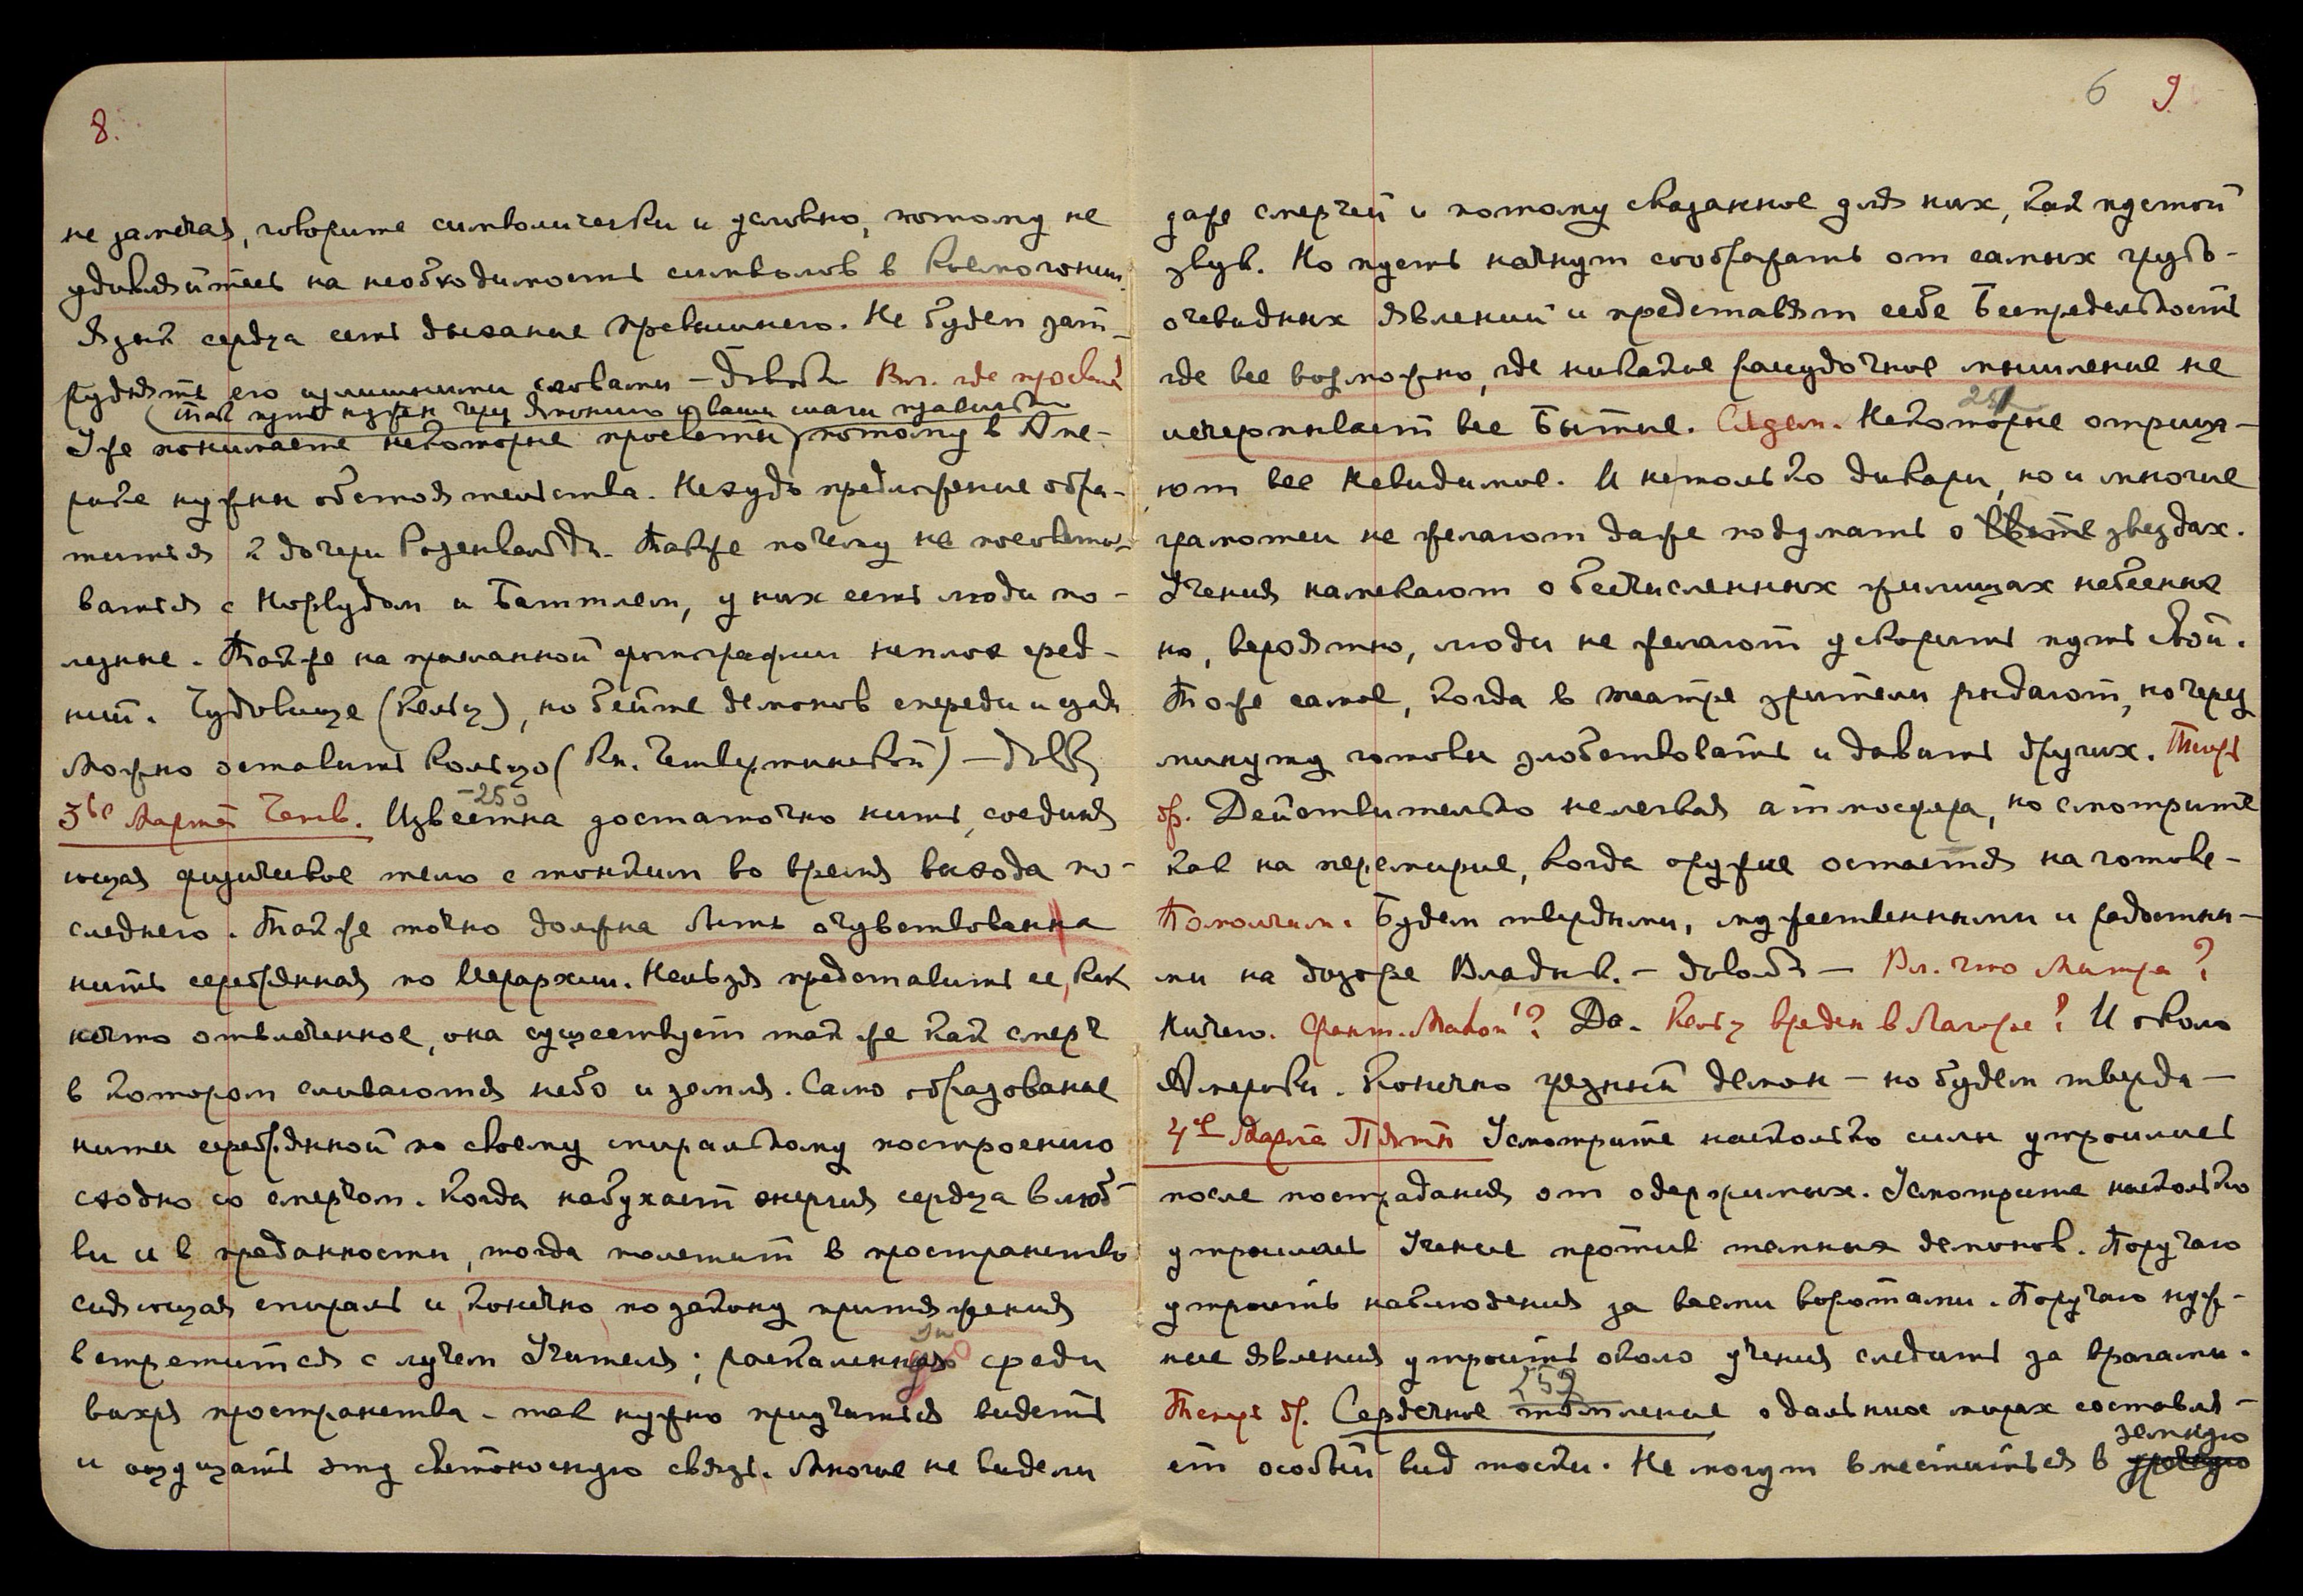 8.
не замечая, говорите символически и условно, потому не
удивляйтесь на необходимость символов в Космогонии.
Язык сердца есть дыхание превышнего. Не будем зат-
руднять его излишними словами – Довольно Вл. где просвет?
(так путь нужен через Японию и ваши шаги правильны
Уже понимаете некоторые просветы) потому в Аме-
рике нужны обстоятельства. Нехудо предложение обра-
титься к дочери Розенвальда. Также почему не посовето-
ваться с Норвудом и Баттлем, у них есть люди по-
лезные. Также на присланной фотографии неплох сред-
ний. Чудовище (Кельц), но бейте демонов спереди и сзади
Можно оставить кольцо (Кн. Четвертинской) – Довольно
3ье Марта Четв. Известна достаточно нить, соединя
250
ющая физическое тело с тонким во время выхода по-
следнего. Так же точно должна быть очувствована
нить серебряная по Иерархии. Нельзя представить ее, как
нечто отвлеченное, она существует так же как смерч
в котором сливаются небо и земля. Само образование
нити серебряной по своему спиральному построению
сходно со смерчом. Когда набухает энергия сердца в люб
ви и в преданности, тогда полетит в пространство
сияющая спираль и, конечно, по закону притяжения
встретится с лучем Учителя; раскаленную среди
вихря пространства – так нужно приучиться видеть
и ощущать эту светоносную связь. Многие не видели
6 9
даже смерчей и потому сказанное для них, как пустой
звук. Но пусть начнут соображать от самых грубо-
очевидных явлений и представят себе Беспредельность
где все возможно, где никакое рассудочное мышление не
исчерпывает все Бытие. Следам. Некоторые отрица-
251
ют все Невидимое. И нетолько дикари, но и многие
грамотеи не желают даже подумать о свете звездах.
Учения намекают о бесчисленных жилищах небесных
но, вероятно, люди не желают ускорить путь свой.
Тоже самое, когда в театре зрители рыдают, но через
минуту готовы злобствовать и давить других. Теперь
др. Действительно нелегкая атмосфера, но смотрите
как на перемирие, когда оружие остается наготове –
Помолчим. Будем твердыми, мужественными и радостны-
ми на дозоре Владык. – довольно – Вл. что Митра?
Ничего. Да. Кельц вреден в Лагоре? И около
Америки. Конечно грязный демон – но будем тверды –
4ое Марта Пятн Усмотрите насколько силы утроились
после пострадания от одержимых. Усмотрите насколько
утроилось Учение против темных демонов. Поручаю
утроить наблюдения за всеми воротами. Поручаю нуж-
ные явления утроить около учения следить за врагами.
252
Теперь др. Сердечное томление о дальних мирах составля-
земную
ет особый вид тоски. Не могут вместиться в